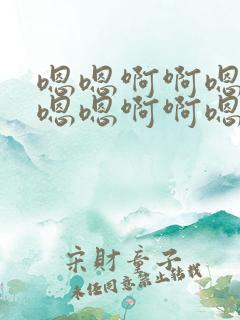 嗯嗯啊啊嗯
嗯嗯啊啊嗯
宋财童子
未经同意禁止转载